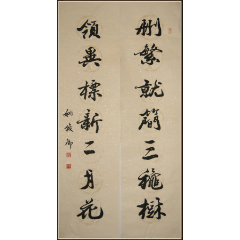 删繁就簡三龝樹
領異標新二月花
姚俊卿